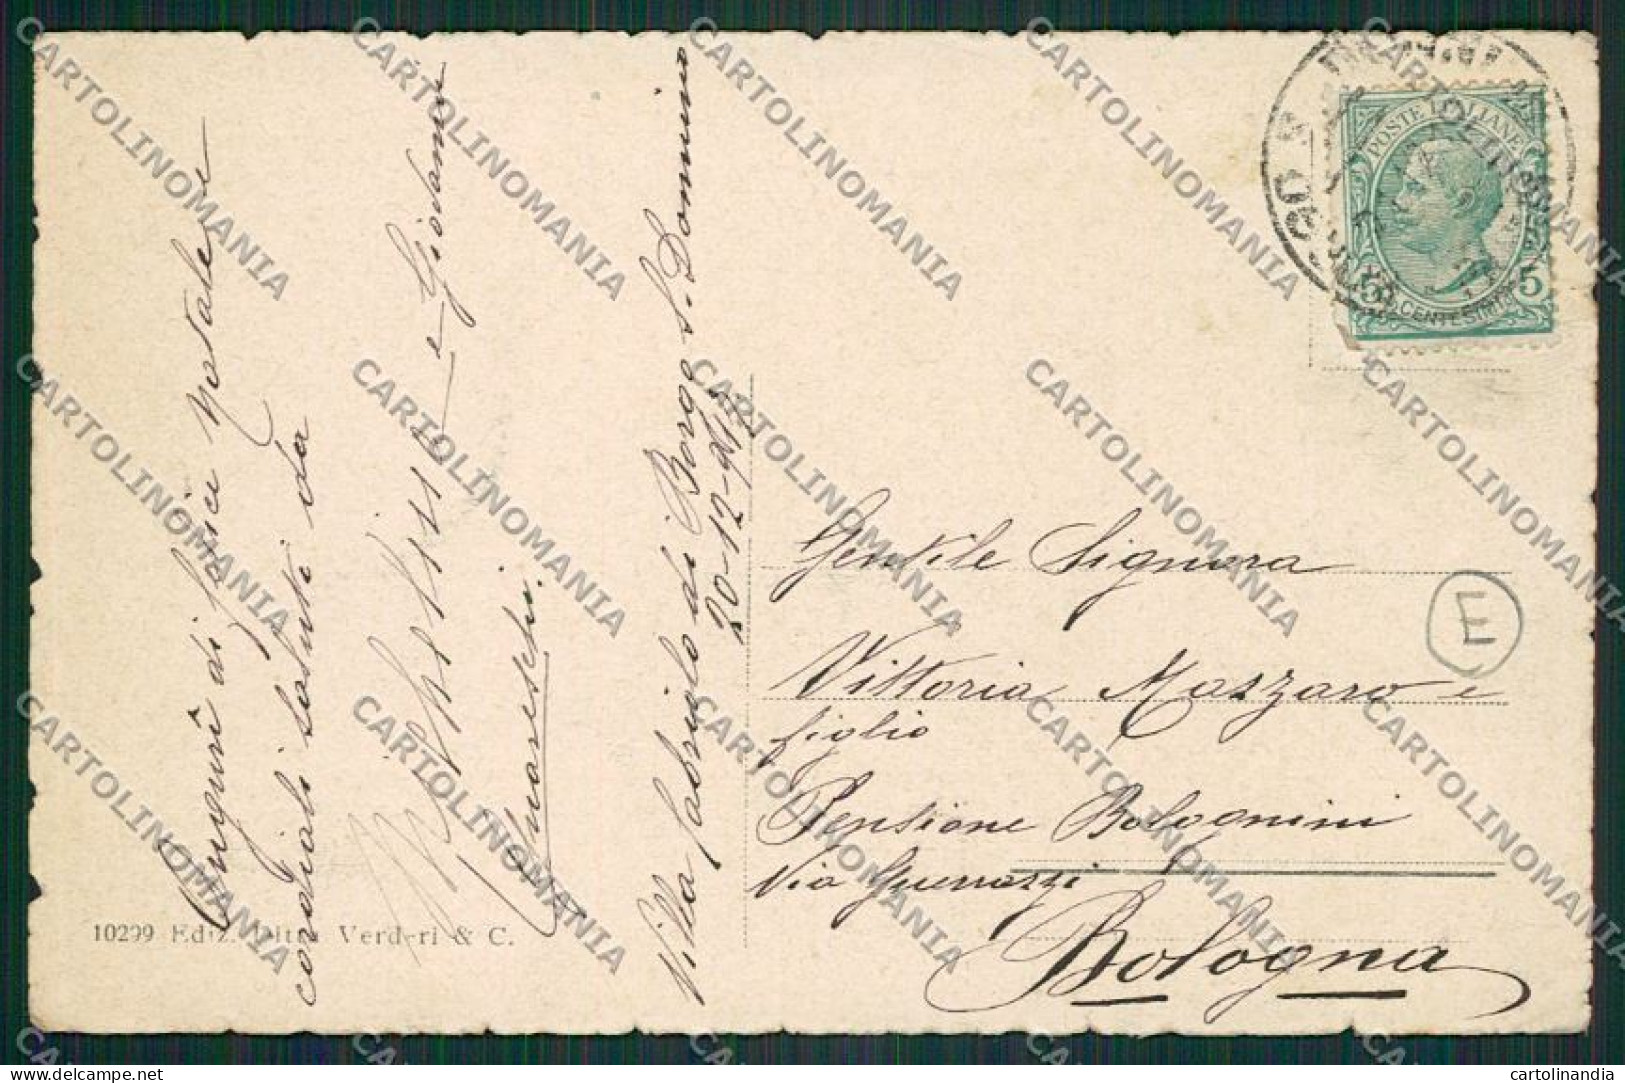 Auguri di felice Natale e
cordiali saluti da
e Giordana
Villa Gabriolo di Borgo S. Donnino
20-12-917
10299 Ediz. Ditta Verderi & C.
POSTE ITALIANE
5 5
CENTESIMI
Gentile Signora
Vittoria Mazzaro e
figlio
Pensione Bolognini
Via Guerrazzi
Bologna
E
CARTOLINOMANIA
cartolinandia